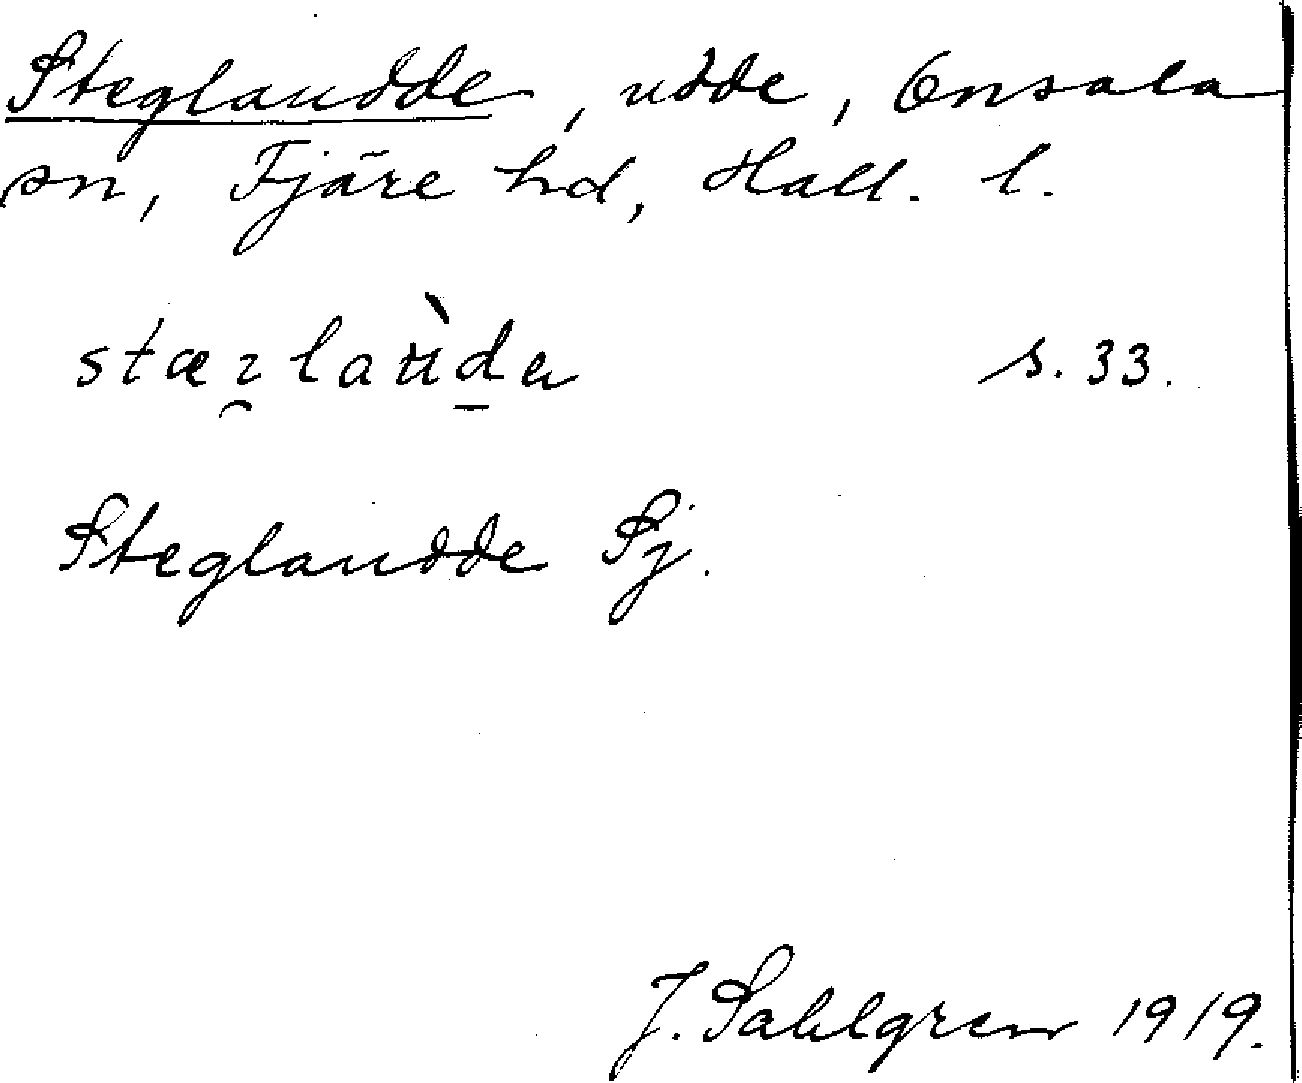 Steglaudde, udde, Onsala
sn, Fjäre hd, Hall. l.
stæɪ̯laùd̠a s. 33.
Steglaudde Sj.
J. Sahlgren 1919.